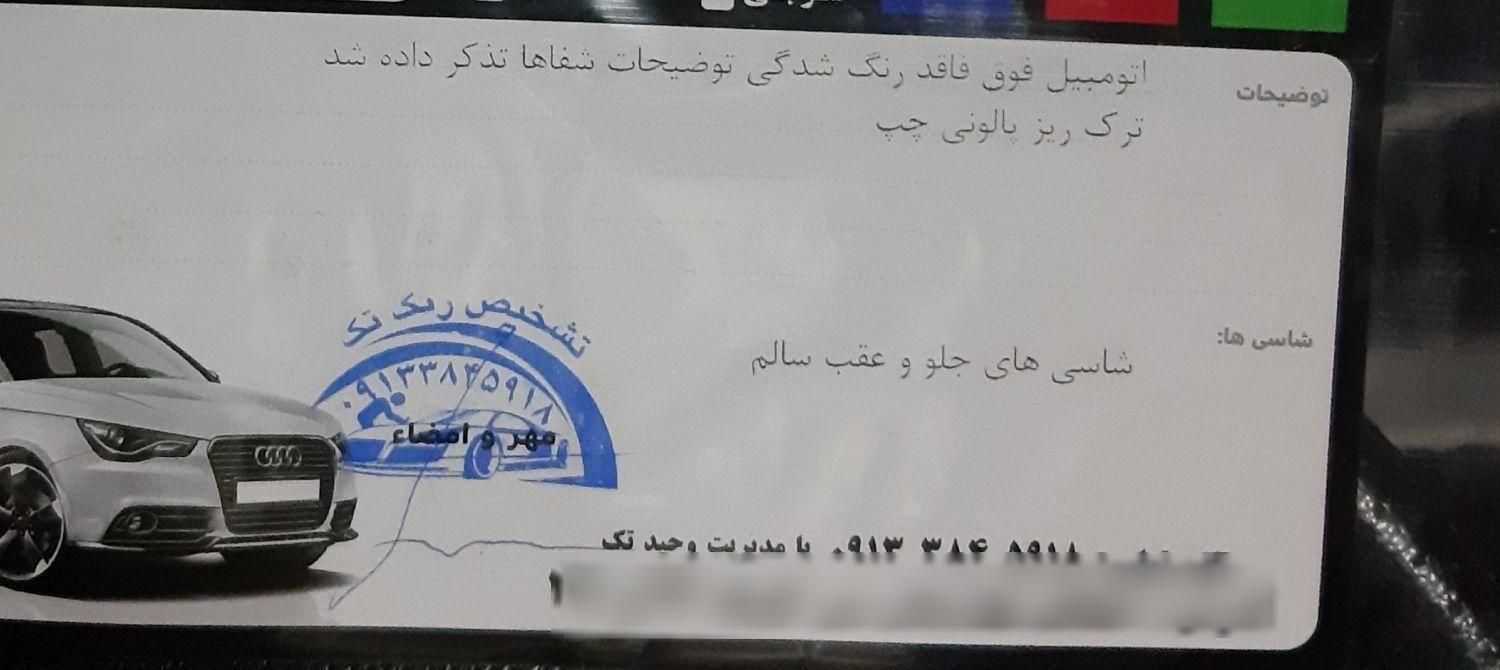 توضیحات
اتومبیل فوق فاقد رنگ شدگی توضیحات شفاها تذکر داده شد
ترک ریز پالونی چپ
شاسی ها:
شاسی های جلو و عقب سالم
تشخیص رنگ تک
۰۹۱۳۳۸۴۵۹۱۸
مهر و امضاء
۰۹۱۳ ۳۸۴ ۵۹۱۸ با مدیریت وحید تک